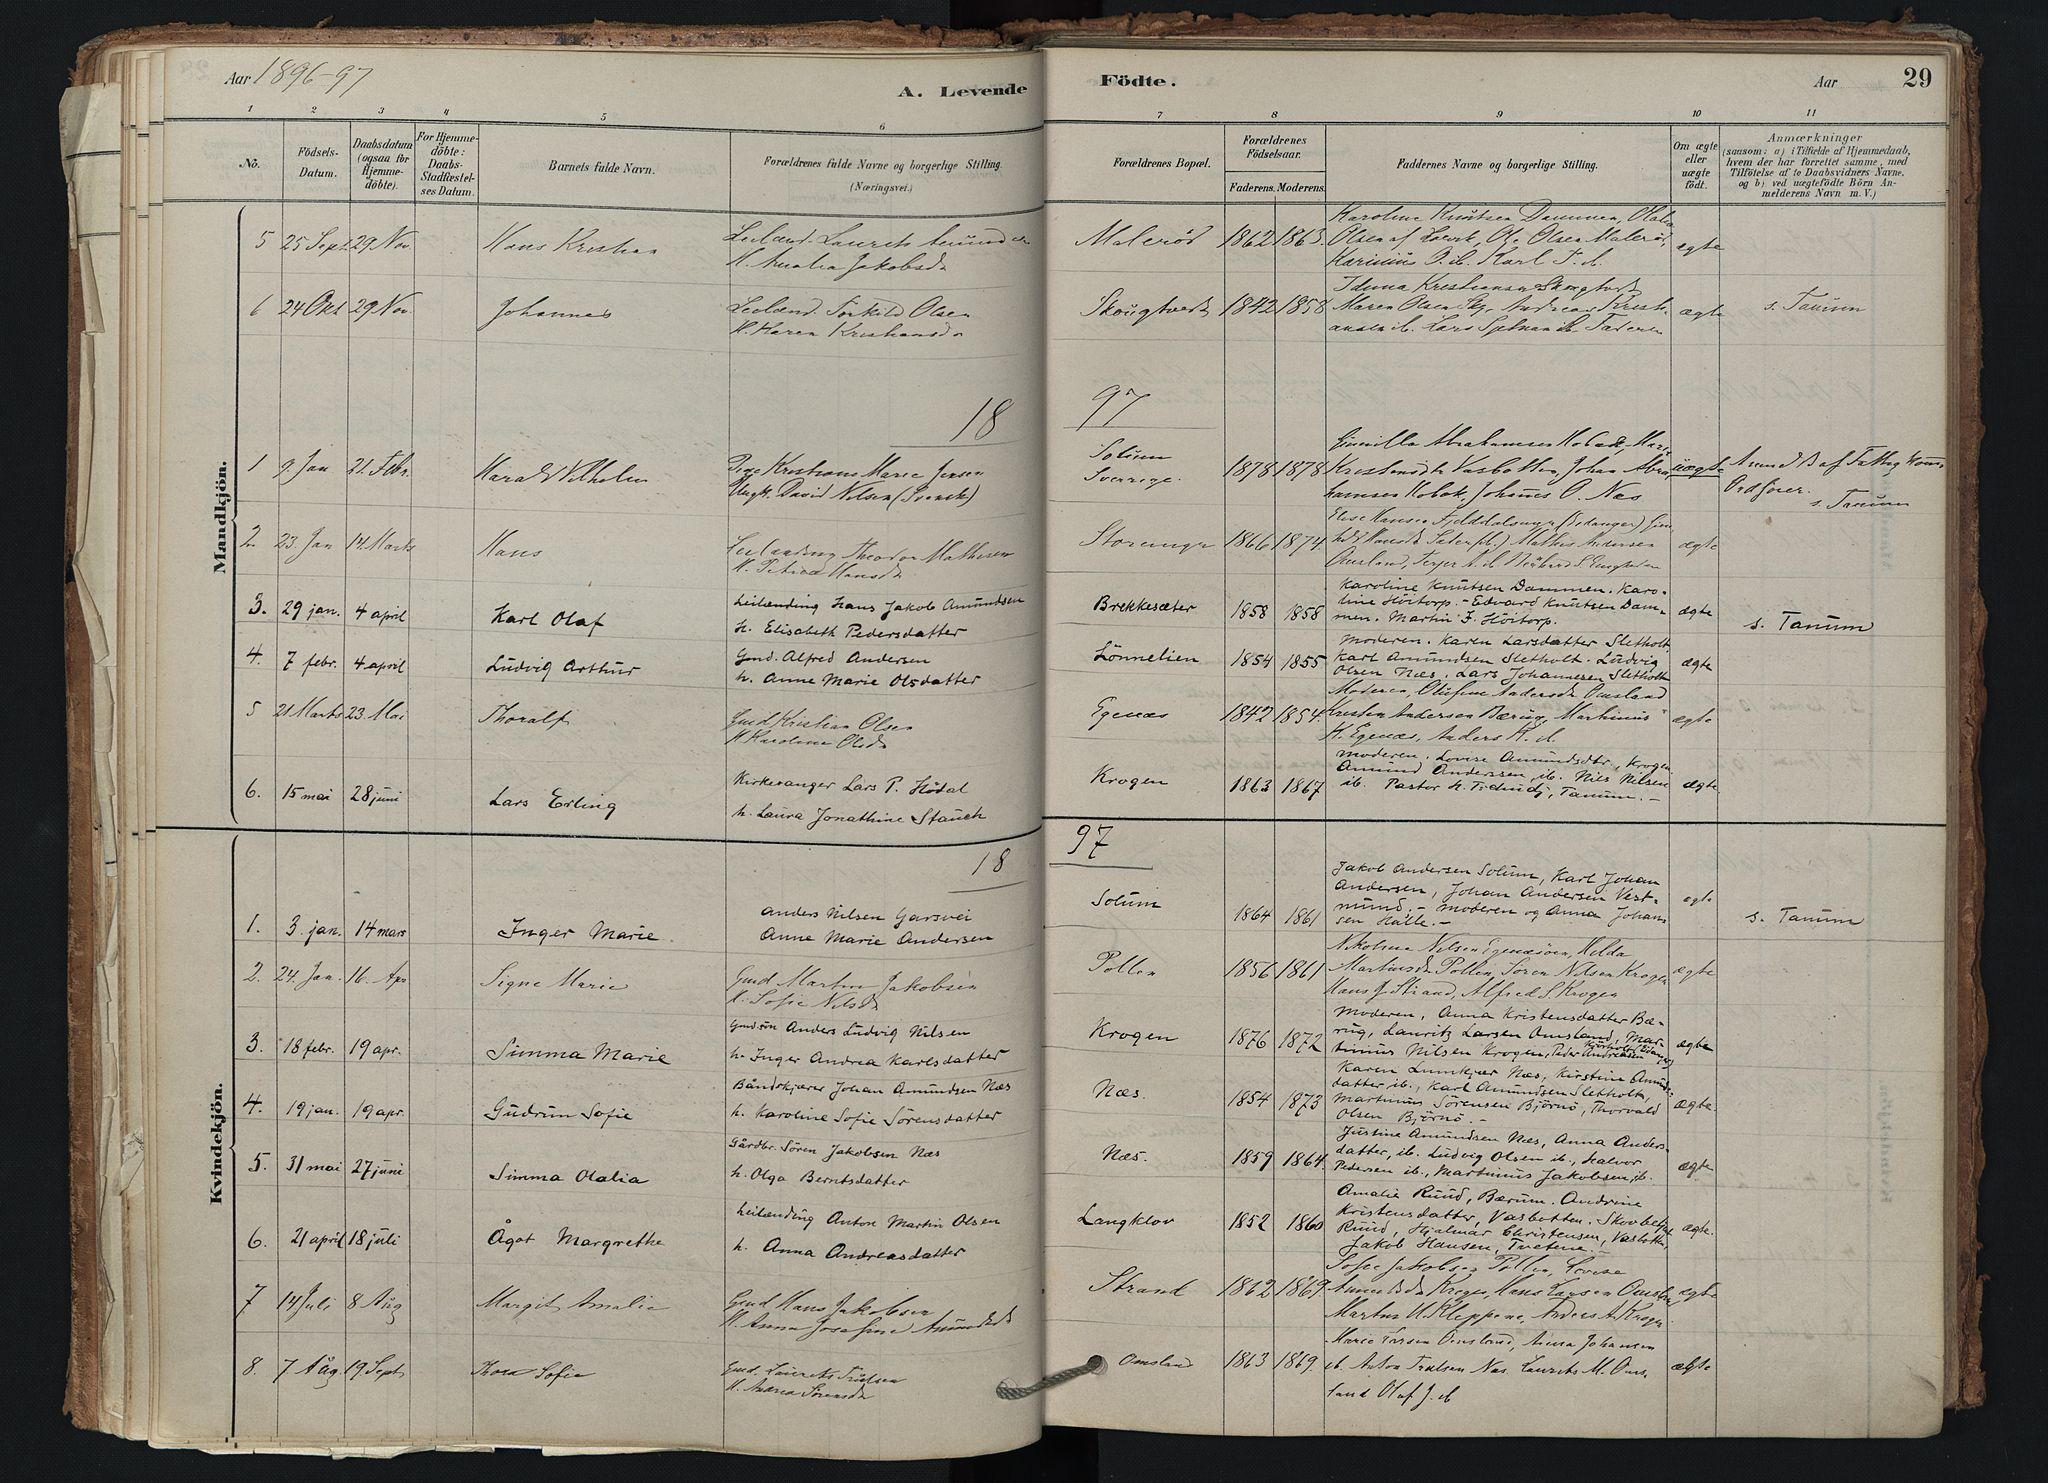 Aar 1896-97
A. Levende
Födte.
Aar
29
1 2 3 4 5 6 7 8 9 10 11
No.
Födsels-
Datum.
Daabsdatum
(ogsaa for
Hjemme-
döbte).
For Hjemme-
döbte:
Daabs-
Stadfæstel-
ses Datum.
Barnets fulde Navn.
Forældrenes fulde Navne og borgerlige Stilling.
(Næringsvei.)
Forældrenes Bopæl.
Forældrenes
Födselsaar.
Faderens. Moderens.
Faddernes Navne og borgerlige Stilling.
Om ægte
eller
uægte
födt.
Anmærkninger
(saasom: a) i Tilfælde af Hjemmedaab,
hvem der har forrettet samme, med
Tilföielse af to Daabsvidners Navne.
og b) ved uægtefödte Börn An-
melderens Navn m. V.)
Mandkjön.
5 25 Sept 29 Nov. Hans Kristian
Leilænd. Laurits
H. Amalia Jakobsd
Malerød 1862 1863
Karoline Knutsen Dammen,
Olsen af Ole Olsen Malerød,
Karinius O. ib. Karl T. ib.
ægte
6 24 Okt 29 Nov. Johannes
Leilænd. Torkild Olsen
H. Maren Kristiansd
Skougtvedt 1842 1858
Kristiansen Skougtvedt
Maren Olsen Andreas Kristi-
ansen ib. Lars Faderen
ægte
s. Tanum
18 97
1 9. Jan 21. Febr. Harald Vilhelm
Pige Kristiane Marie Jensen
Ungk. David Nilsen (Svensk)
Solum
Sverrige. 1878 1878
Gunnilla Abrahamsen Hobæk, Mari
Johan Abra-
hamsen Hobæk, Johannes O. Næs
uægte
Ordfører.
s. Tanum
2. 23. Jan 14. Marts Hans
Leilænding Theodor Mathisen
H. Petrea Hansd
Storange 1866 1874
Elise Hansen
Mathis Andersen
Omsland,
ægte
3. 29 jan. 4 april Karl Olaf
Leilænding Hans Jakob Amundsen
h. Elisabeth Pedersdatter
Brekkesæter 1858 1858
Karoline Knutsen Dammen. Karo-
line Höitorp. - Edvard Knutsen Dam-
men. Martin J. Höitorp.
ægte
s. Tanum
4. 7 febr. 4 april Ludvig Arthur
Gmd. Alfred Andersen
h. Anne Marie Olsdatter
Lönnelien 1854 1855
Moderen. Karen Larsdatter Sletholt
Karl Amundsen Sletholt. Ludvig
Olsen Næs. Lars Johannesen Sletholt
ægte
5 21 Marts 23. Mai Thoralf
Gmd Kristian Olsen
H Karoline Olsd
Egenæs 1842 1854.
Moderen, Olufine Andersd Omsland
Kristen Andersen Bærug, Martinius
K. Egenæs, Anders K. ib
ægte
6. 15 mai 28 juni Lars Erling
Kirkesanger Lars P. Hödal
h. Laura Jonathine Stauch
Krogen 1863 1867
Moderen. Lovise Amundsdtr. Krogen
Amund Anderssen, ib. Nils Nilsen
ib. Pastor h. Tanum. -
ægte.
Kvindekjön.
18 97
1. 3. jan. 14 mars Inger Marie.
Anders Nilsen Garsvei
Anne Marie Andersen
Solum 1864 1861
Jakob Andersen Solum, Karl Johan
Andersen, Johan Andersen Vest-
mund. - Moderen og Anna Johan-
sen Halle. -
ægte
s. Tanum
2. 24. Jan. 16. Apr Signe Marie
Gmd Martin Jakobsen
H. Sofie Nilsd
Pollen 1856 1861
Nikoline Nilsen Hilda
Martinsd Pollen, Sören Nilsen Krogen
Hans J. Strand, Alfred S. Krogen
ægte
3. 18 febr. 19 apr. Simma Marie
Gmdsøn Anders Ludvig Nilsen
h. Inger Andrea Karlsdatter
Krogen 1876 1872
Moderen, Anna Kristensdatter Bæ-
rug, Lauritz Larsen Omsland, Mar-
tinius Nilsen Krogen, Peder Andreasen
ægte
4. 19 jan. 19 apr. Gudrun Sofie
Båndskjærer Johan Amundsen Næs
h. Karoline Sofie Sörensdatter
Næs. 1854 1873
Karen Lunnkjær Næs, Kirstine Amunds-
datter ib., Karl Amundsen Sletholt,
Martinus Sörensen Björnö, Thorvald
Olsen Björnö. -
ægte.
5. 31 mai 27 juni Simma Olalia
Gårdbr. Sören Jakobsen Næs
h. Olga Berntsdatter
Næs. 1859 1864
Justina Amundsen Næs, Anna Anders-
datter, ib. Ludvig Olsen ib., Halvor
Pedersen ib., Martinius Jakobsen, ib.
ægte
6. 21 april 18 juli Ågot Margrethe
Leilænding Anton Martin Olsen
h. Anna Andreasdatter
Langklov 1852 1860
Amalie Ruud, Bærum. Andrine
Kristensdatter, Vasbotten. Skovbetjent
Ruud, Hjalmar Christensen, Vasbotten,
Jakob Hansen, Tvetene. -
ægte.
7 14 Juli 8 Aug Margit Amalie
Gmd Hans Jakobsen
H. Anna Josefine Amundsd
Strand 1862 1869
Sofie Jakobsen Pollen, Lovise
Krogen Hans Larsen Omsland
Martin Kleppene, Anders A. Krogen
ægte
8. 7 Aug. 19 Sept Thora Sofie
Gmd. Laurits Trulsen
H. Andrea Sörensd
Omsland 1863 1869.
Marie Larsen Omsland, Anna Johansen
ib. Anton Trulsen Næs Laurits M. Oms-
land Olaf J. ib
ægte